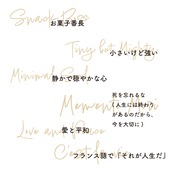 Snack Boss
お菓子番長
Tiny but Mighty
小さいけど強い
Minimal Soul
静かで穏やかな心
Memento mori
死を忘れるな
（人生には終わり
があるのだから、
今を大切に）
Love and Peace
愛と平和
C'est la vie
フランス語で「それが人生だ」